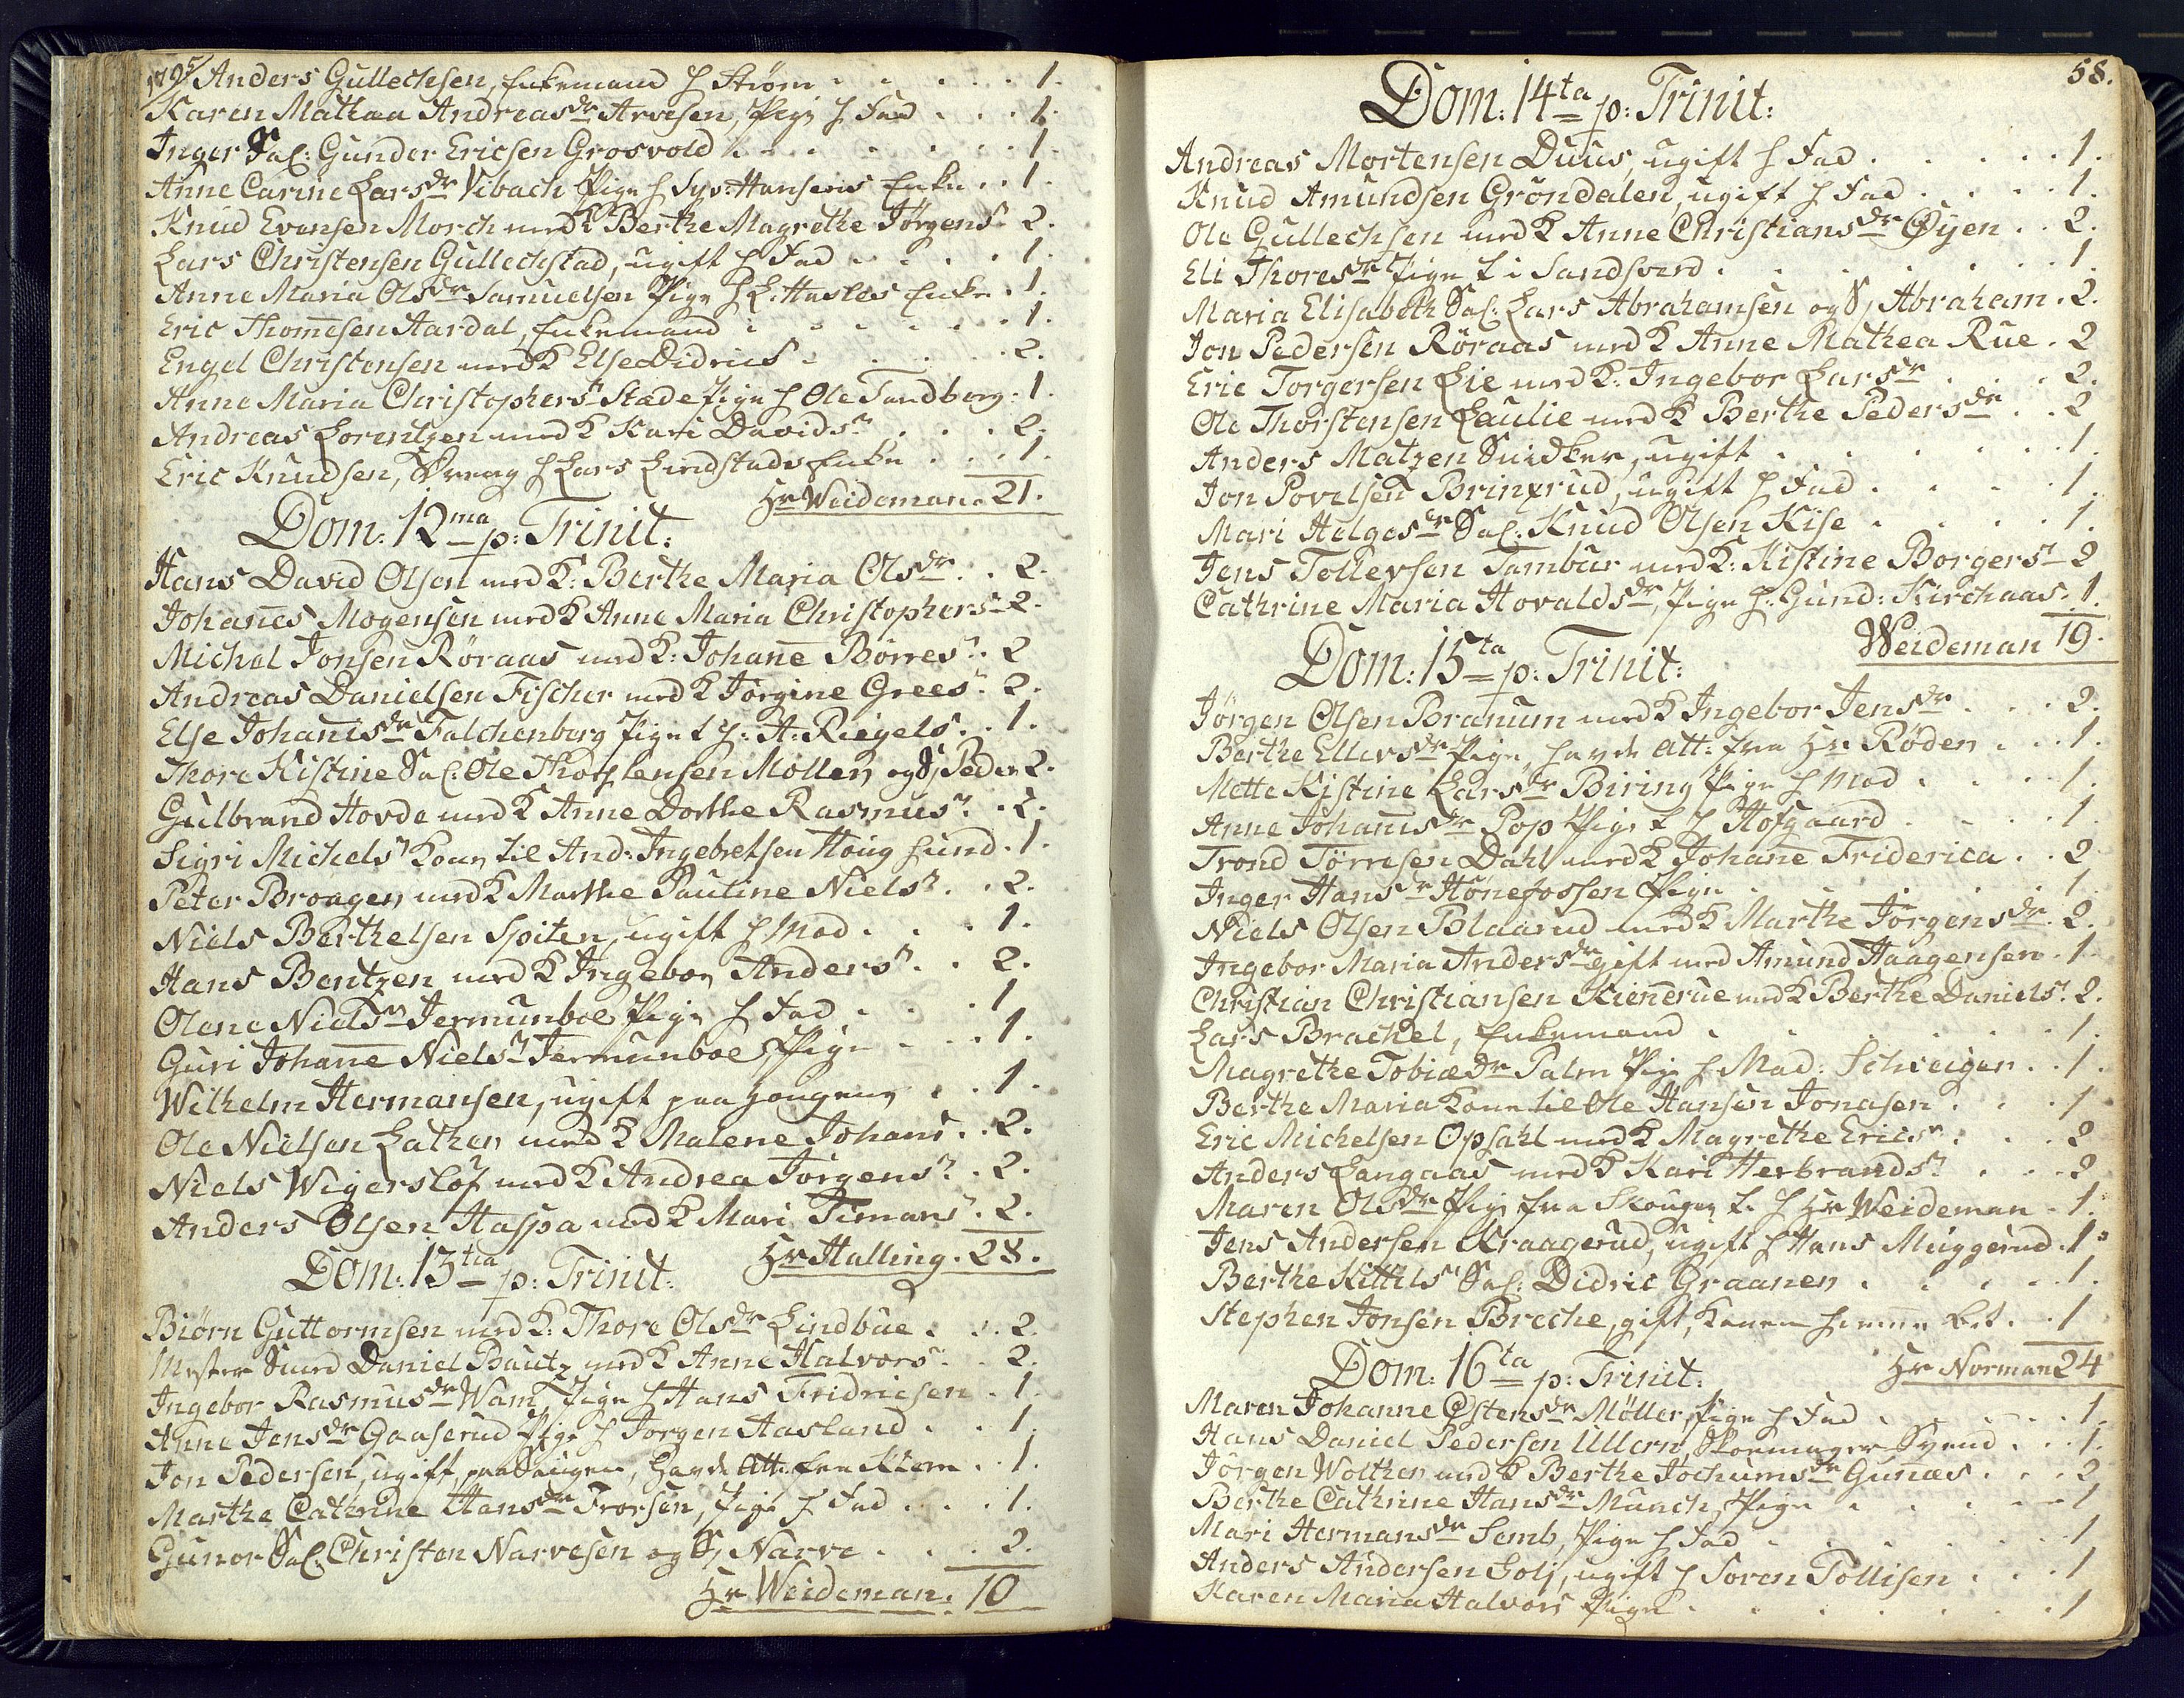 1795 Anders Gullechsen, Enkemand h Strøm . . . . 1.
Karen Mathea Andreasdr Arvesen, Pige h Fad . . . 1.
Inger Sal: Gunder Ericsen Grosvold . . . . . 1.
Anne Carine Larsdr Vibach Pige h Syv: Hansens Enke . . 1.
Knud Evensen Morch med K Berthe Magrethe Jørgens 2.
Lars Christensen Gullechstad, ugift h Fad . . . . 1.
Anne Maria Olsdr Samuelsen Pige h L: Hasles Enke . 1.
Eric Thomesen Aardal, Enkemand . . . . . 1.
Engel Christensen med K Else Didrics . . . . 2.
Anne Maria Christophers Stæde Pige h Ole Sundberg . 1.
Andreas Lorentzen med K Kari Davids . . . 2.
Eric Knudsen, Dreng h Lars Lindstads Enke . . . 1.
Hr Weideman 21.
Dom: 12ma p: Trinit:
Hans David Olsen med K: Berthe Maria Olsdr . . 2.
Johannes Mogensen med K Anne Maria Christophers 2.
Michel Jonsen Röraas med K: Johanne Börres . 2
Andreas Danielsen Fischer med K Jørgine Grees . 2.
Else Johanisdr Falchenberg Pige t h: A: Riegels . . 1.
Thore Kistine Sal: Ole Thorstensen Möllen og S Peder 2.
Gulbrand Hovde med K Anne Dorthe Rasmus . 2.
Sigri Michels Kone til And: Ingebretsen Houg hund . 1.
Peter Braagen med K Marthe Pauline Niels . . 2.
Niels Berthelsen Spiten, ugift h Mod . . . 1.
Hans Bentzen med K Ingebor Anders . . 2.
Olene Niels Jermunboe Pige h Fad . . . 1
Guri Johanne Niels Jermunboe Pige . . . 1.
Wilhelm Hermansen, ugift paa Hougene . . 1.
Ole Nielsen Lathen med K Malene Johans . . 2.
Niels Wigerslöf med K Andrea Jørgens . 2.
Anders Olsen Haspa med K Mari Timans . 2.
Hr Halling . 28.
Dom: 13tia p: Trinit:
Biörn Guttormsen med K: Thore Olsdr Lindbue . . 2.
Mester Smed Daniel Bautz med K Anne Halvors . . 2.
Ingebor Rasmusdr Wam, Pige h Hans Fridricsen . 1.
Anne Jensdr Gaaserud Pige h Jorgen Aasland . . 1.
Jon Pedersen, ugift paa Saugene, havde Att: fra Klem . . 1.
Marthe Cathrine Hansdr Frorsen, Pige h Fad . . . 1.
Gunor Sal: Christen Narvesen og S Narve . . . 2.
Hr Weideman . 10
58.
Dom: 14ta p: Trinit:
Andreas Mortensen Duus, ugift h Fad . . . . . 1.
Knud Amundsen Gröndalen, ugift h Fad . . . . 1.
Ole Gullechsen med K Anne Christiansdr Øyen . . 2.
Eli Thoresdr Pige t i Sandsverd . . . . . . 1.
Maria Elisabeth Sal: Lars Abrahamsen og S, Abraham . 2.
Jon Pedersen Röraas med K Anne Mathea Rue . 2
Eric Torgersen Lie med K: Ingebor Larsdr . . . . 2.
Ole Thorstensen Laulie med K Berthe Pedersdr . . 2
Anders Matzen Snidker, ugift . . . . . . 1.
Jon Povelsen Brinxrud, ugift h Fad . . . . 1.
Mari Helgesdr Sal: Knud Olsen Kise . . . . . 1.
Jens Tollevsen Tambur med K: Kistine Borgers 2
Cathrine Maria Hovaldsdr, Pige h: Gund: Kirchaas . 1.
Weideman 19.
Dom: 15ta p: Trinit:
Jörgen Olsen Branum med K Ingebor Jensdr . . . 2.
Berthe Ellersdr Pige, havde Att: fra Hr Röden . . . 1.
Mette Kistine Larsdr Biring Pige h Mod . . . . 1.
Anne Johannisdr Pop Pige t h Hofgaard . . . . 1.
Trond Törresen Dahl med K Johanne Friderica . . 2
Inger Hansdr Hönefossen Pige . . . . . . 1.
Niels Olsen Blaarud med K Marthe Jörgensdr . 2.
Ingebor Maria Andersdr gift med Amund Haagensen . 1.
Christian Christiansen Kiennerue med K Berthe Daniels . 2.
Lars Brachel, Enkemand . . . . . . . 1.
Magrethe Tobiædr Palm Pige h Mad: Schveiger . . 1.
Berthe Maria Kone til Ole Hansen Jonasen . . . 1
Eric Michelsen Opsahl med K Magrethe Erics . . . 2
Anders Langaas med K Kari Herbrands . . . 2
Maren Olsdr Pige fra Skougen t. h Hr Weideman . 1.
Jens Andersen Kraagerud, ugift h Hans Muggerud . 1.
Berthe Kittils Sal: Didric Graanen . . . . . 1.
Stephen Jonsen Breche, gift, Konen hiemme bet. . . 1
Hr Norman 24
Dom: 16ta p: Trinit:
Maren Johanne Ostensdr Möller, Pige h Fad . . . . 1.
Hans Daniel Pedersen Ullern, Skomager Svend . . . 1.
Jörgen Wolther med K Berthe Jochumsdr Gunnæs . . . 2
Berthe Cathrine Hansdr Münch, Pige . . . . . 1
Mari Hermansdr Semb, Pige h Fad . . . . . 1
Anders Andersen Soli, ugift h Soren Tollisen . . . 1
Karen Maria Halvors Pige . . . . . . 1